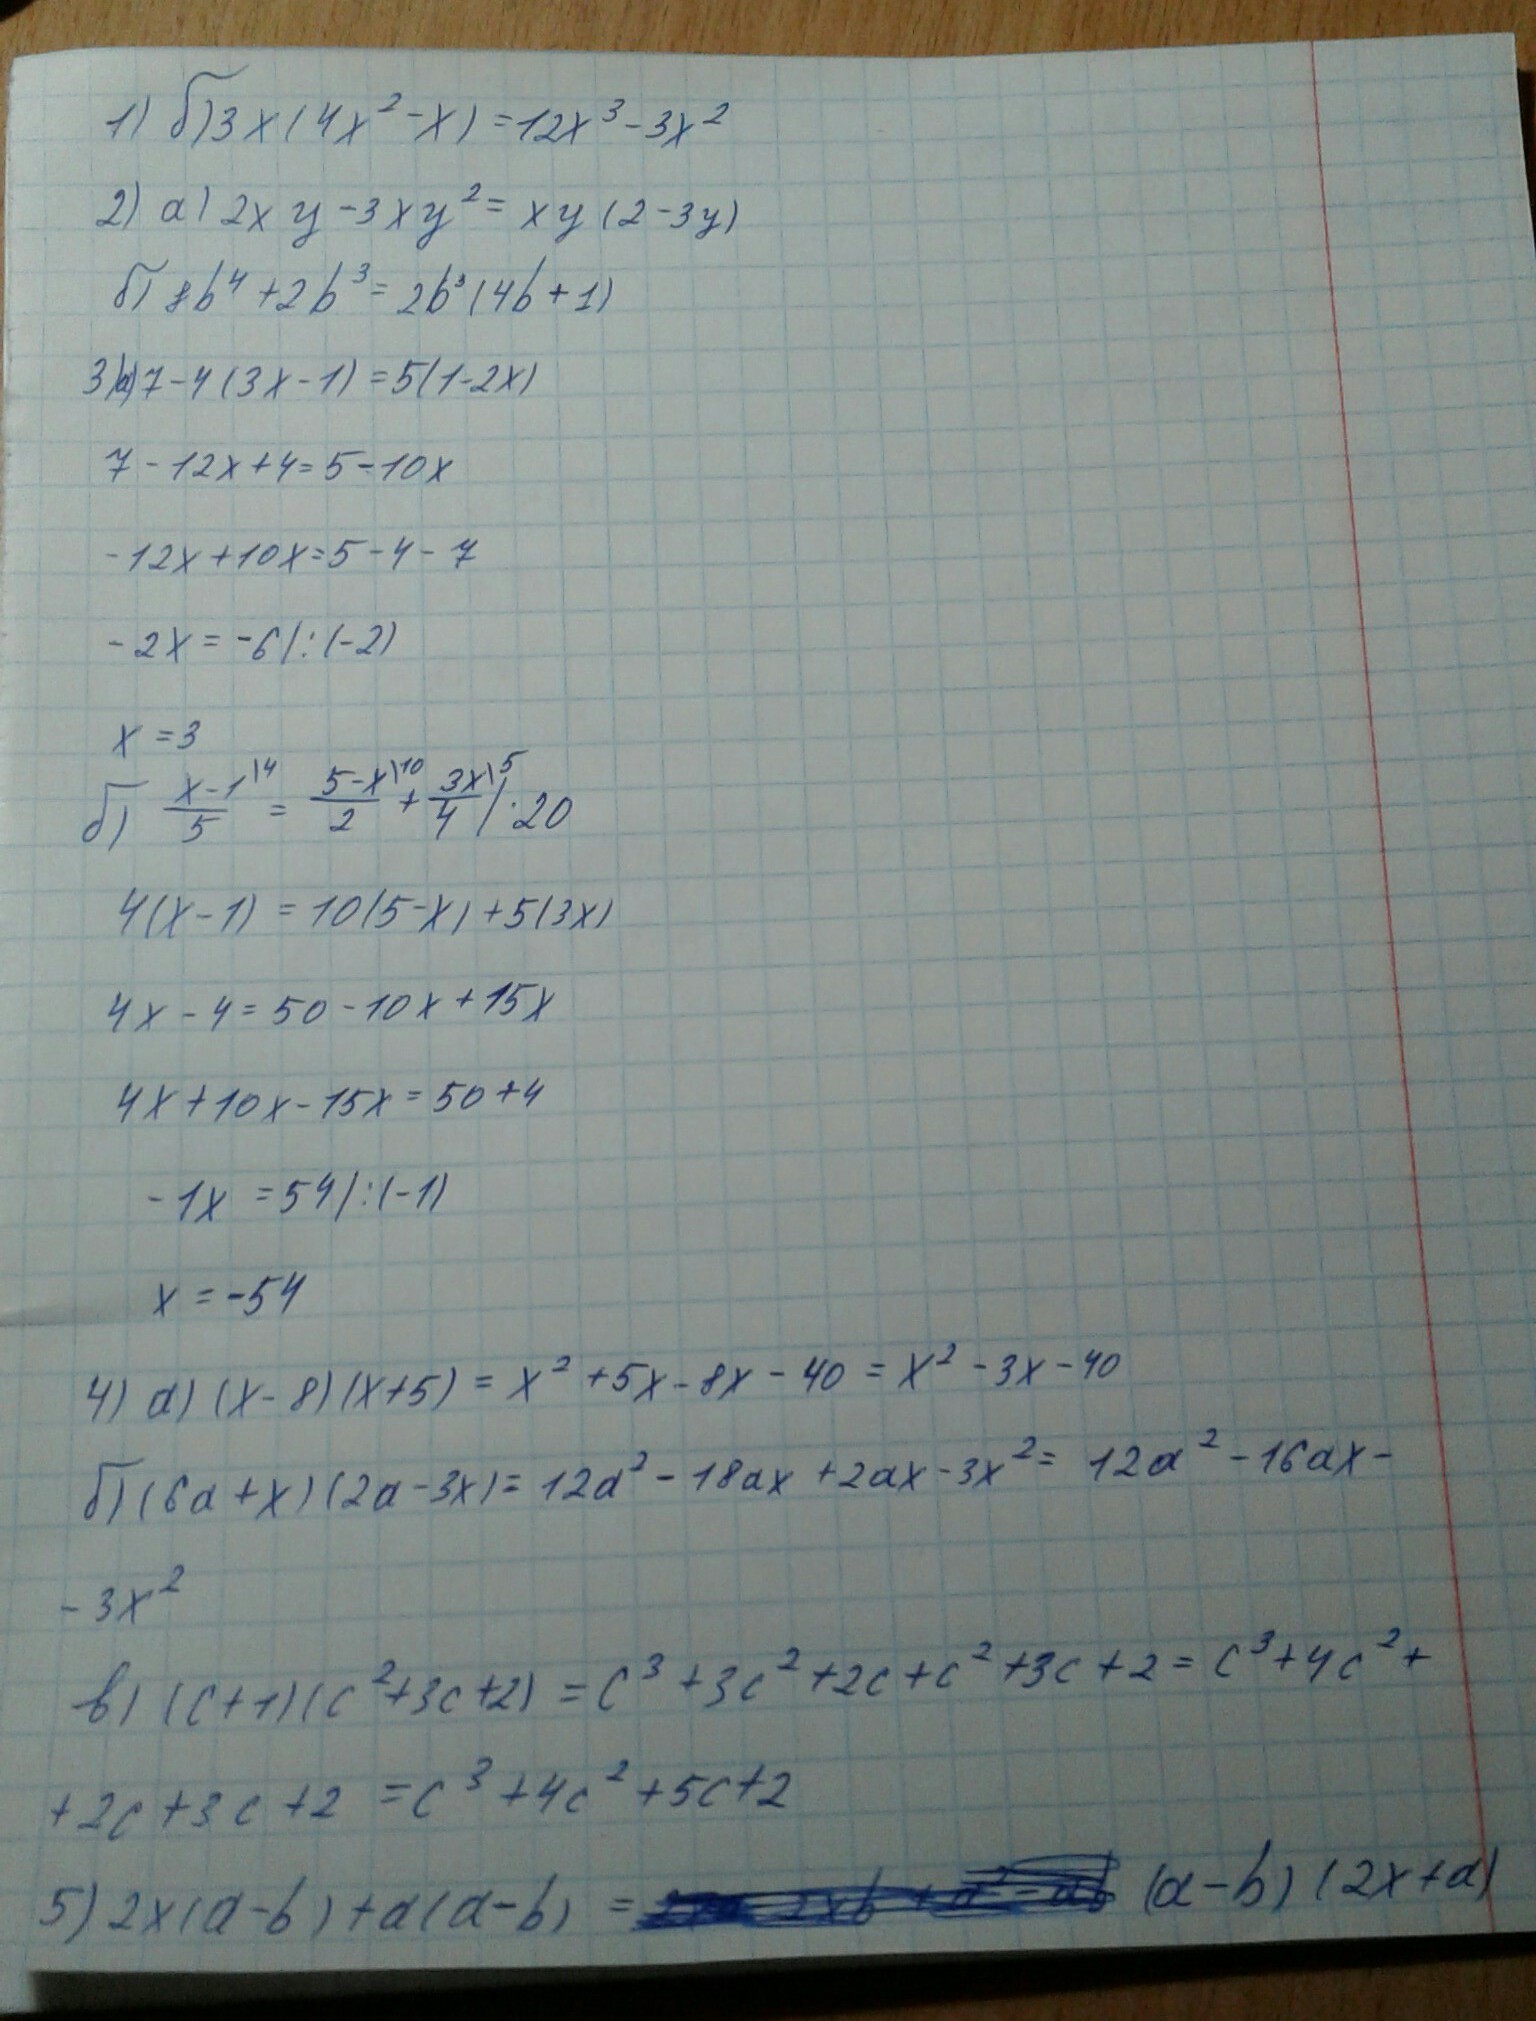 1) б) 3x(4x²-x)=12x³-3x²
2) а) 2xy-3xy²=xy(2-3y)
б) 8b⁴+2b³=2b³(4b+1)
3) а) 7-4(3x-1)=5(1-2x)
7-12x+4=5-10x
-12x+10x=5-4-7
-2x=-6|:(-2)
x=3
б) (x-1)/5 \4 = (5-x)/2 \10 + 3x/4 \5 |·20
4(x-1)=10(5-x)+5(3x)
4x-4=50-10x+15x
4x+10x-15x=50+4
-1x=54|:(-1)
x=-54
4) а) (x-8)(x+5)=x²+5x-8x-40=x²-3x-40
б) (6a+x)(2a-3x)=12a²-18ax+2ax-3x²=12a²-16ax-
-3x²
в) (c+1)(c²+3c+2)=c³+3c²+2c+c²+3c+2=c³+4c²+
+2c+3c+2=c³+4c²+5c+2
5) 2x(a-b)+a(a-b)= (a-b)(2x+a)